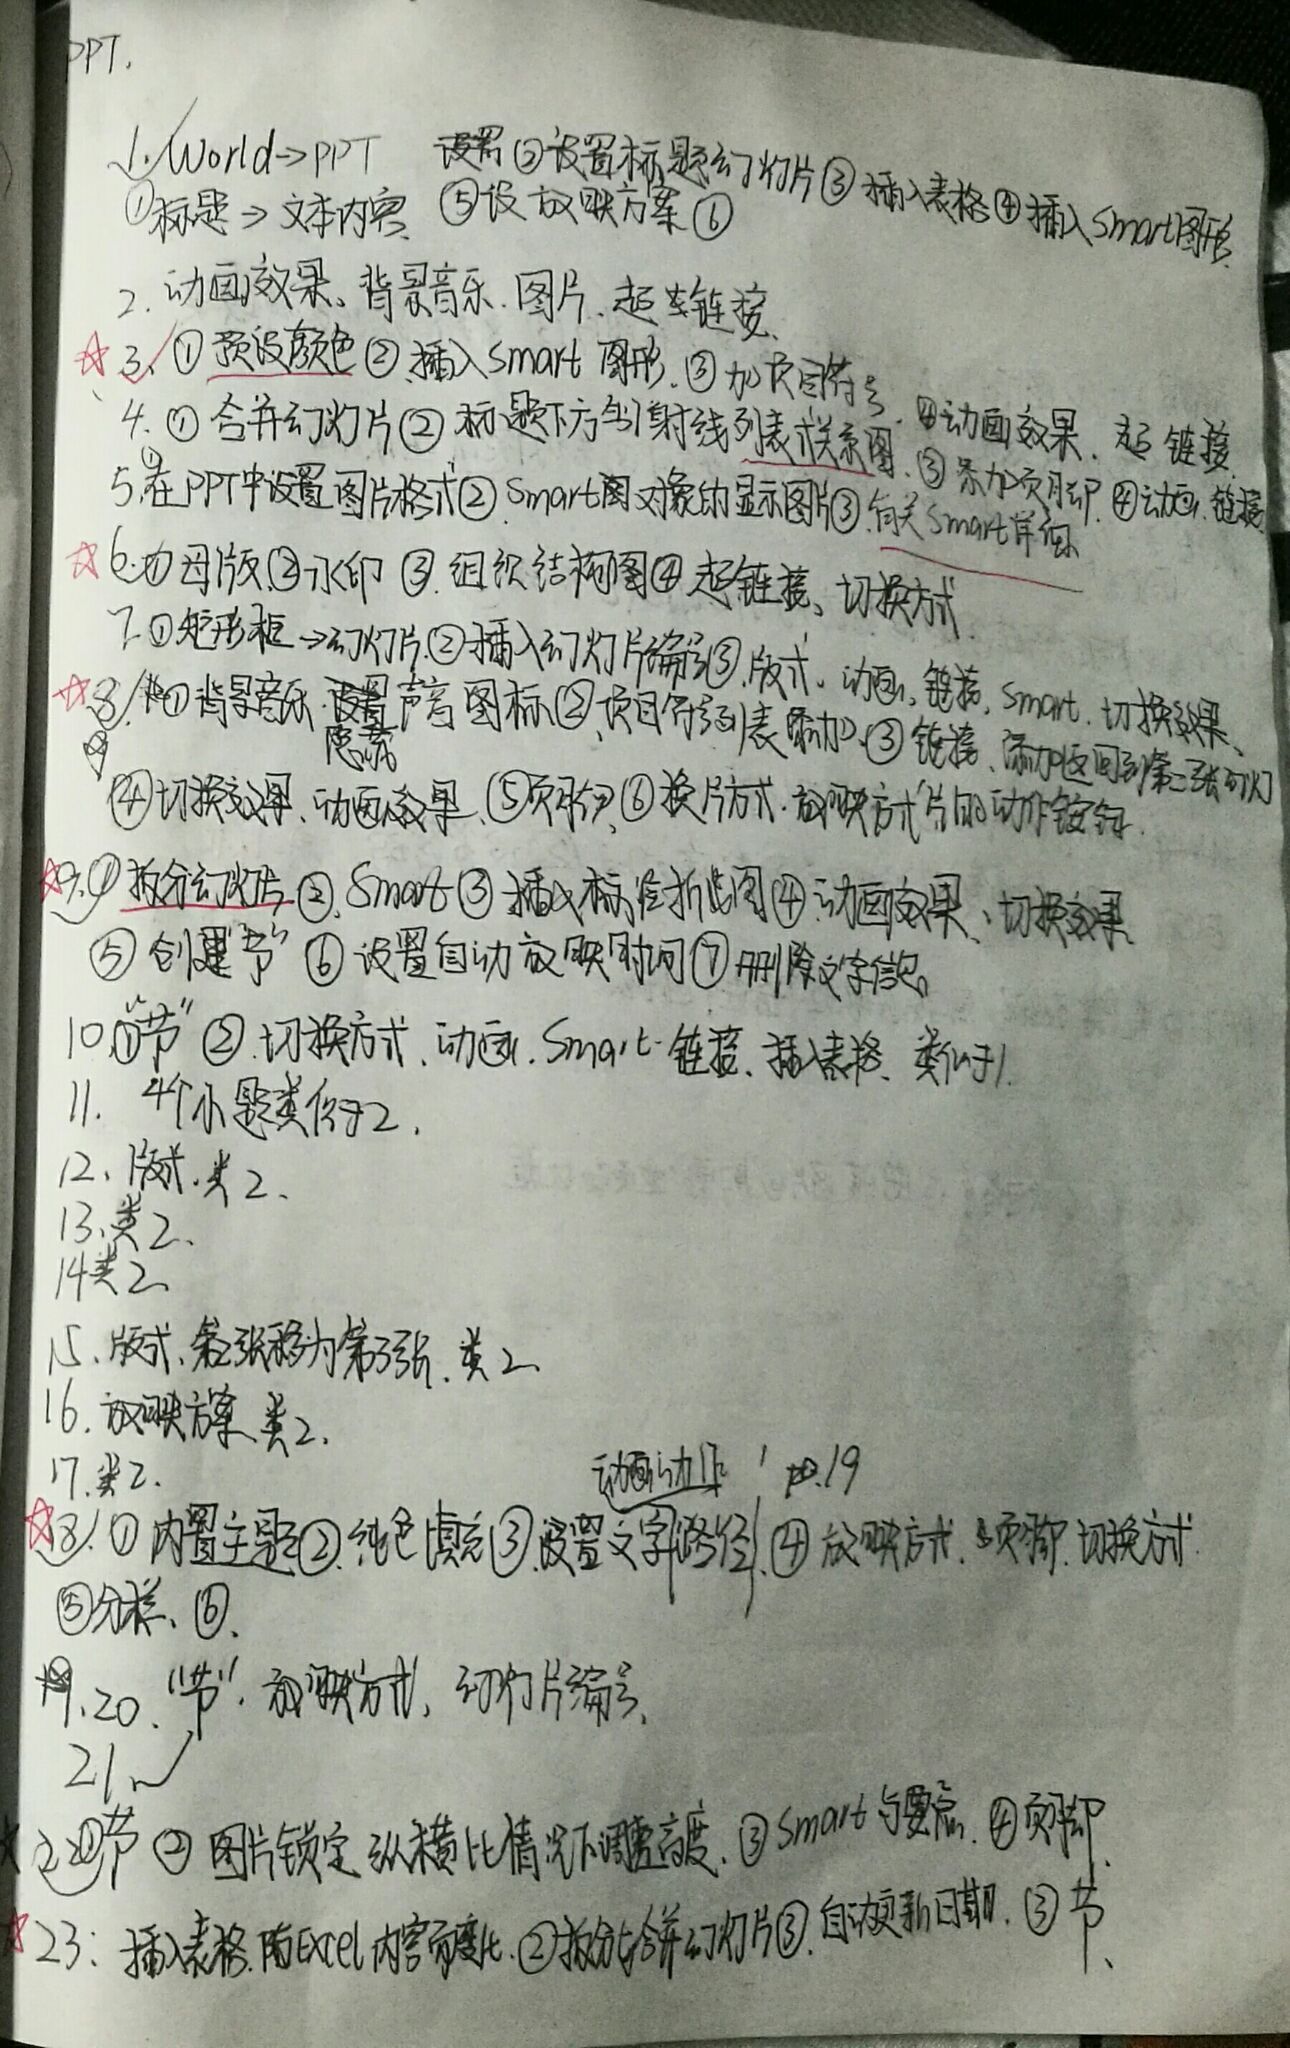 PPT.
1. World→PPT 设置②设置标题幻灯片③插入表格④插入Smart图形
①标题→文本内容 ⑤设放映方案⑥
2. 动画效果、背景音乐.图片.超链接.
3. ①预设颜色②.插入Smart 图形.③加项目符号.
4. ①合并幻灯片②标题下方射线列表式关系图.④动画效果、超链接.
5.①在PPT中设置图片格式②.Smart图对象的显示图片③.有关Smart详细 ③添加页脚.④动画.链接
6.①母版.②水印 ③.组织结构图④超链接、切换方式
7.①矩形框→幻灯片.②插入幻灯片编号③.版式.动画.链接.Smart.切换效果、
8.①背景音乐.设置声音图标②.项目符号列表添加.③链接、添加返回到第二张幻灯
隐藏
④切换效果、动画效果.⑤页脚.⑥换片方式.放映方式 片的动作按钮.
9.①拆分幻灯片②.Smart③插入标准折线图④.动画效果、切换效果
⑤创建"节" ⑥设置自动放映时间⑦删除文字信息
10.①"节"②.切换方式.动画.Smart.链接.插入表格、类似于1.
11. 4个小题类似于2.
12、版式.类2.
13.类2.
14类2.
15、版式、第2张移为第3张.类2
16.放映方案 类2.
17.类2.
动画动作 P.19
18.①内置主题②.纯色填充③.设置文字路径④放映方式.页脚.切换方式
⑤分栏、⑥.
19.20、"节".放映方式,幻灯片编号.
21.
22①节 ②图片锁定纵横比情况下调整高度.③Smart ④页脚.
23: 插入表格.随Excel内容而变化.②拆分与合并幻灯片③.自动更新日期.③节、